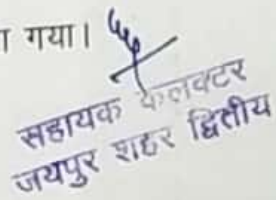 ा गया।
सहायक कलक्टर
जयपुर शहर द्वितीय